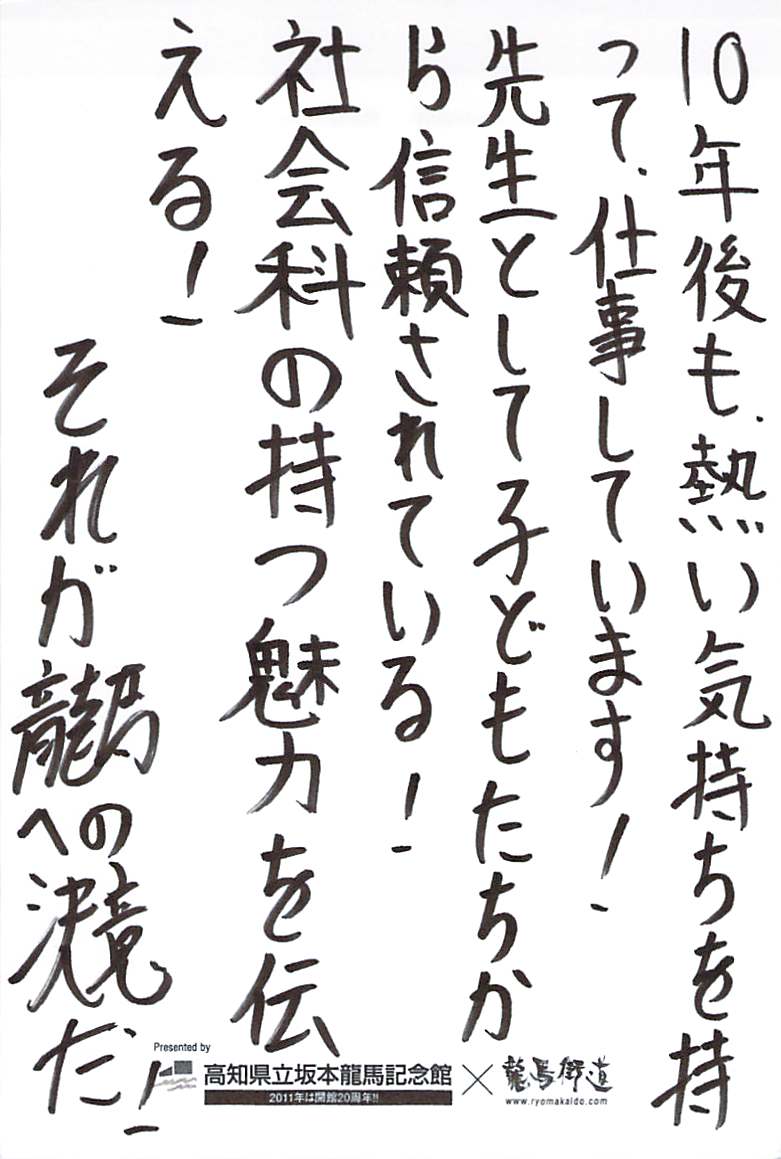 10年後も、熱い気持ちを持
って、仕事しています!
先生として子どもたちか
ら信頼されている!
社会科の持つ魅力を伝
える!
それが龍馬への決意だ!
Presented by
高知県立坂本龍馬記念館
2011年は開館20周年!!
×
龍馬街道
www.ryomakaido.com